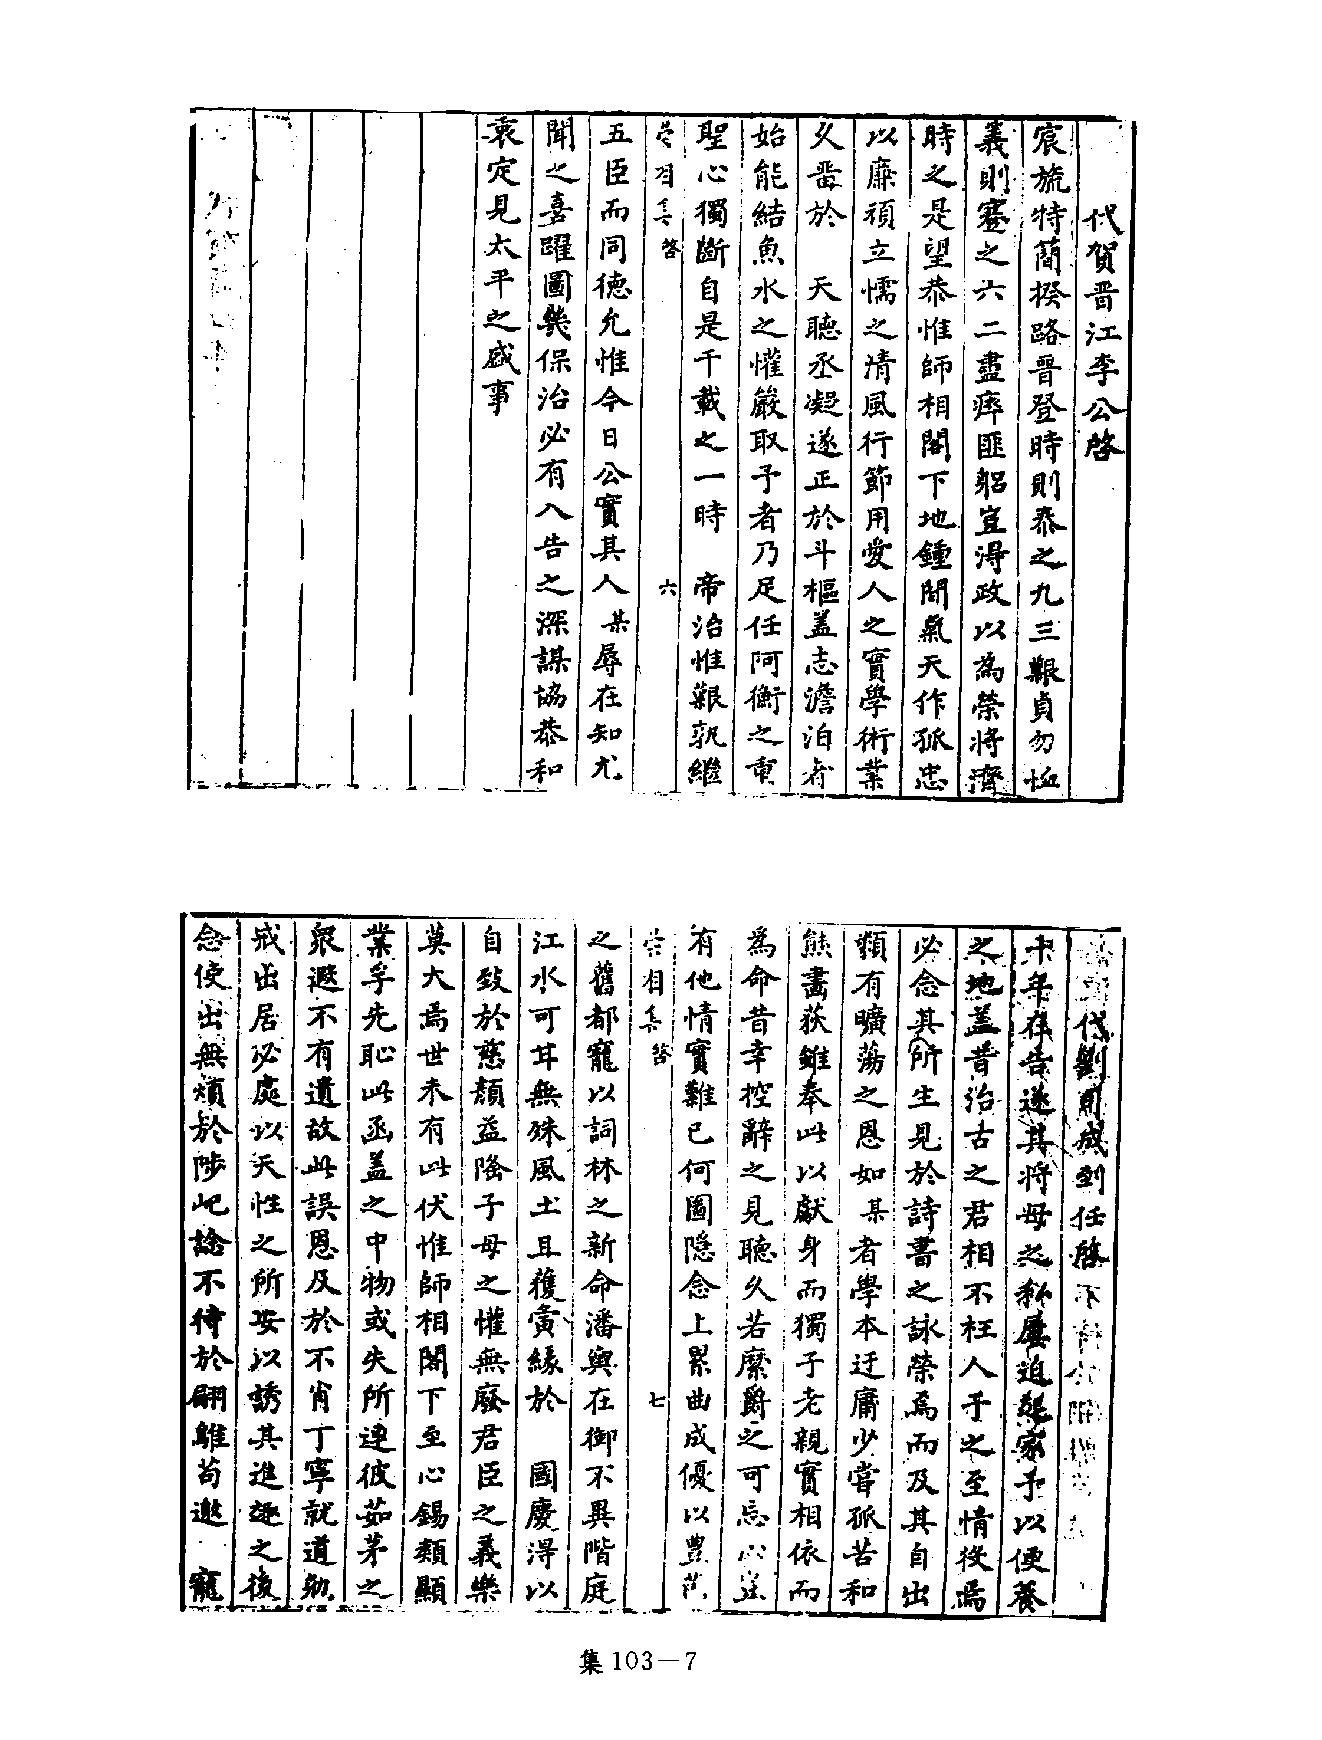 代賀晋江李公啓
宸旒特簡揆路晋登時則泰之九三艱貞勿恤
義則蹇之六二盡瘁匪躬豈得政以為榮將濟
時之是望恭惟師相閣下地鍾間氣天作孤忠
以廉頑立懦之清風行節用愛人之實學術業
久畨於　天聽丞凝遂正於斗樞蓋志澹泊者
始能結魚水之懽嚴取予者乃足任阿衡之重
聖心獨斷自是千載之一時　帝治惟艱孰繼
啓　六
五臣而同德允惟今日公實其人某辱在知尤
聞之喜躍圖幾保治必有入告之深謀協恭和
衷定見太平之盛事
代劉司成到任啓
十年在告遂其將母之私屢迫起家予以便養
之地蓋昔治古之君相不枉人子之至情役焉
必念其所生見於詩書之詠榮焉而及其自出
類有曠蕩之恩如某者學本迂庸少嘗孤苦和
熊畫荻雖奉此以獻身而獨子老親實相依而
為命昔幸控辭之見聽久若縻爵之可忘心豈
有他情實難已何圖隱念上累曲成優以豊芑
啓　七
之舊都寵以詞林之新命潘輿在御不異階庭
江水可甘無殊風土且獲夤緣於　國慶得以
自致於慈顏益隆子母之懽無廢君臣之義樂
莫大焉世未有此伏惟師相閣下至心錫類顯
業孚先恥此函蓋之中物或失所連彼茹茅之
衆遐不有遺故此誤恩及於不肖丁寧就道勉
戒出居必處以天性之所安以誘其進趣之後
念使出無煩於陟屺諗不待於翩鵻苟邀　寵
集 103－7